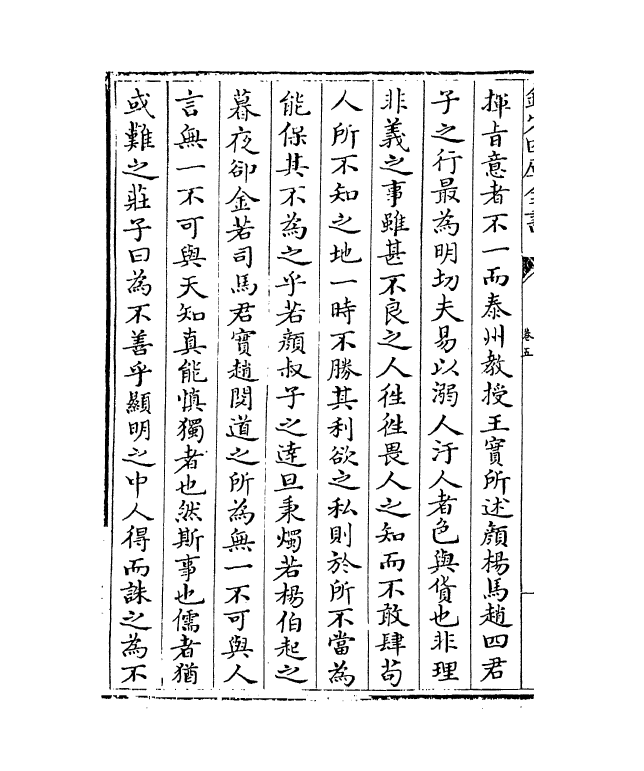 欽定四庫全書
卷五
揮旨意者不一而泰州教授王實所述顔楊馬趙四君
子之行最為明切夫易以溺人汙人者色與貨也非理
非義之事雖甚不良之人徃徃畏人之知而不敢肆茍
人所不知之地一時不勝其利欲之私則於所不當為
能保其不為之乎若顔叔子之達旦秉燭若楊伯起之
暮夜卻金若司馬君實趙閱道之所為無一不可與人
言無一不可與天知真能慎獨者也然斯事也儒者猶
或難之莊子曰為不善乎顯明之中人得而誅之為不